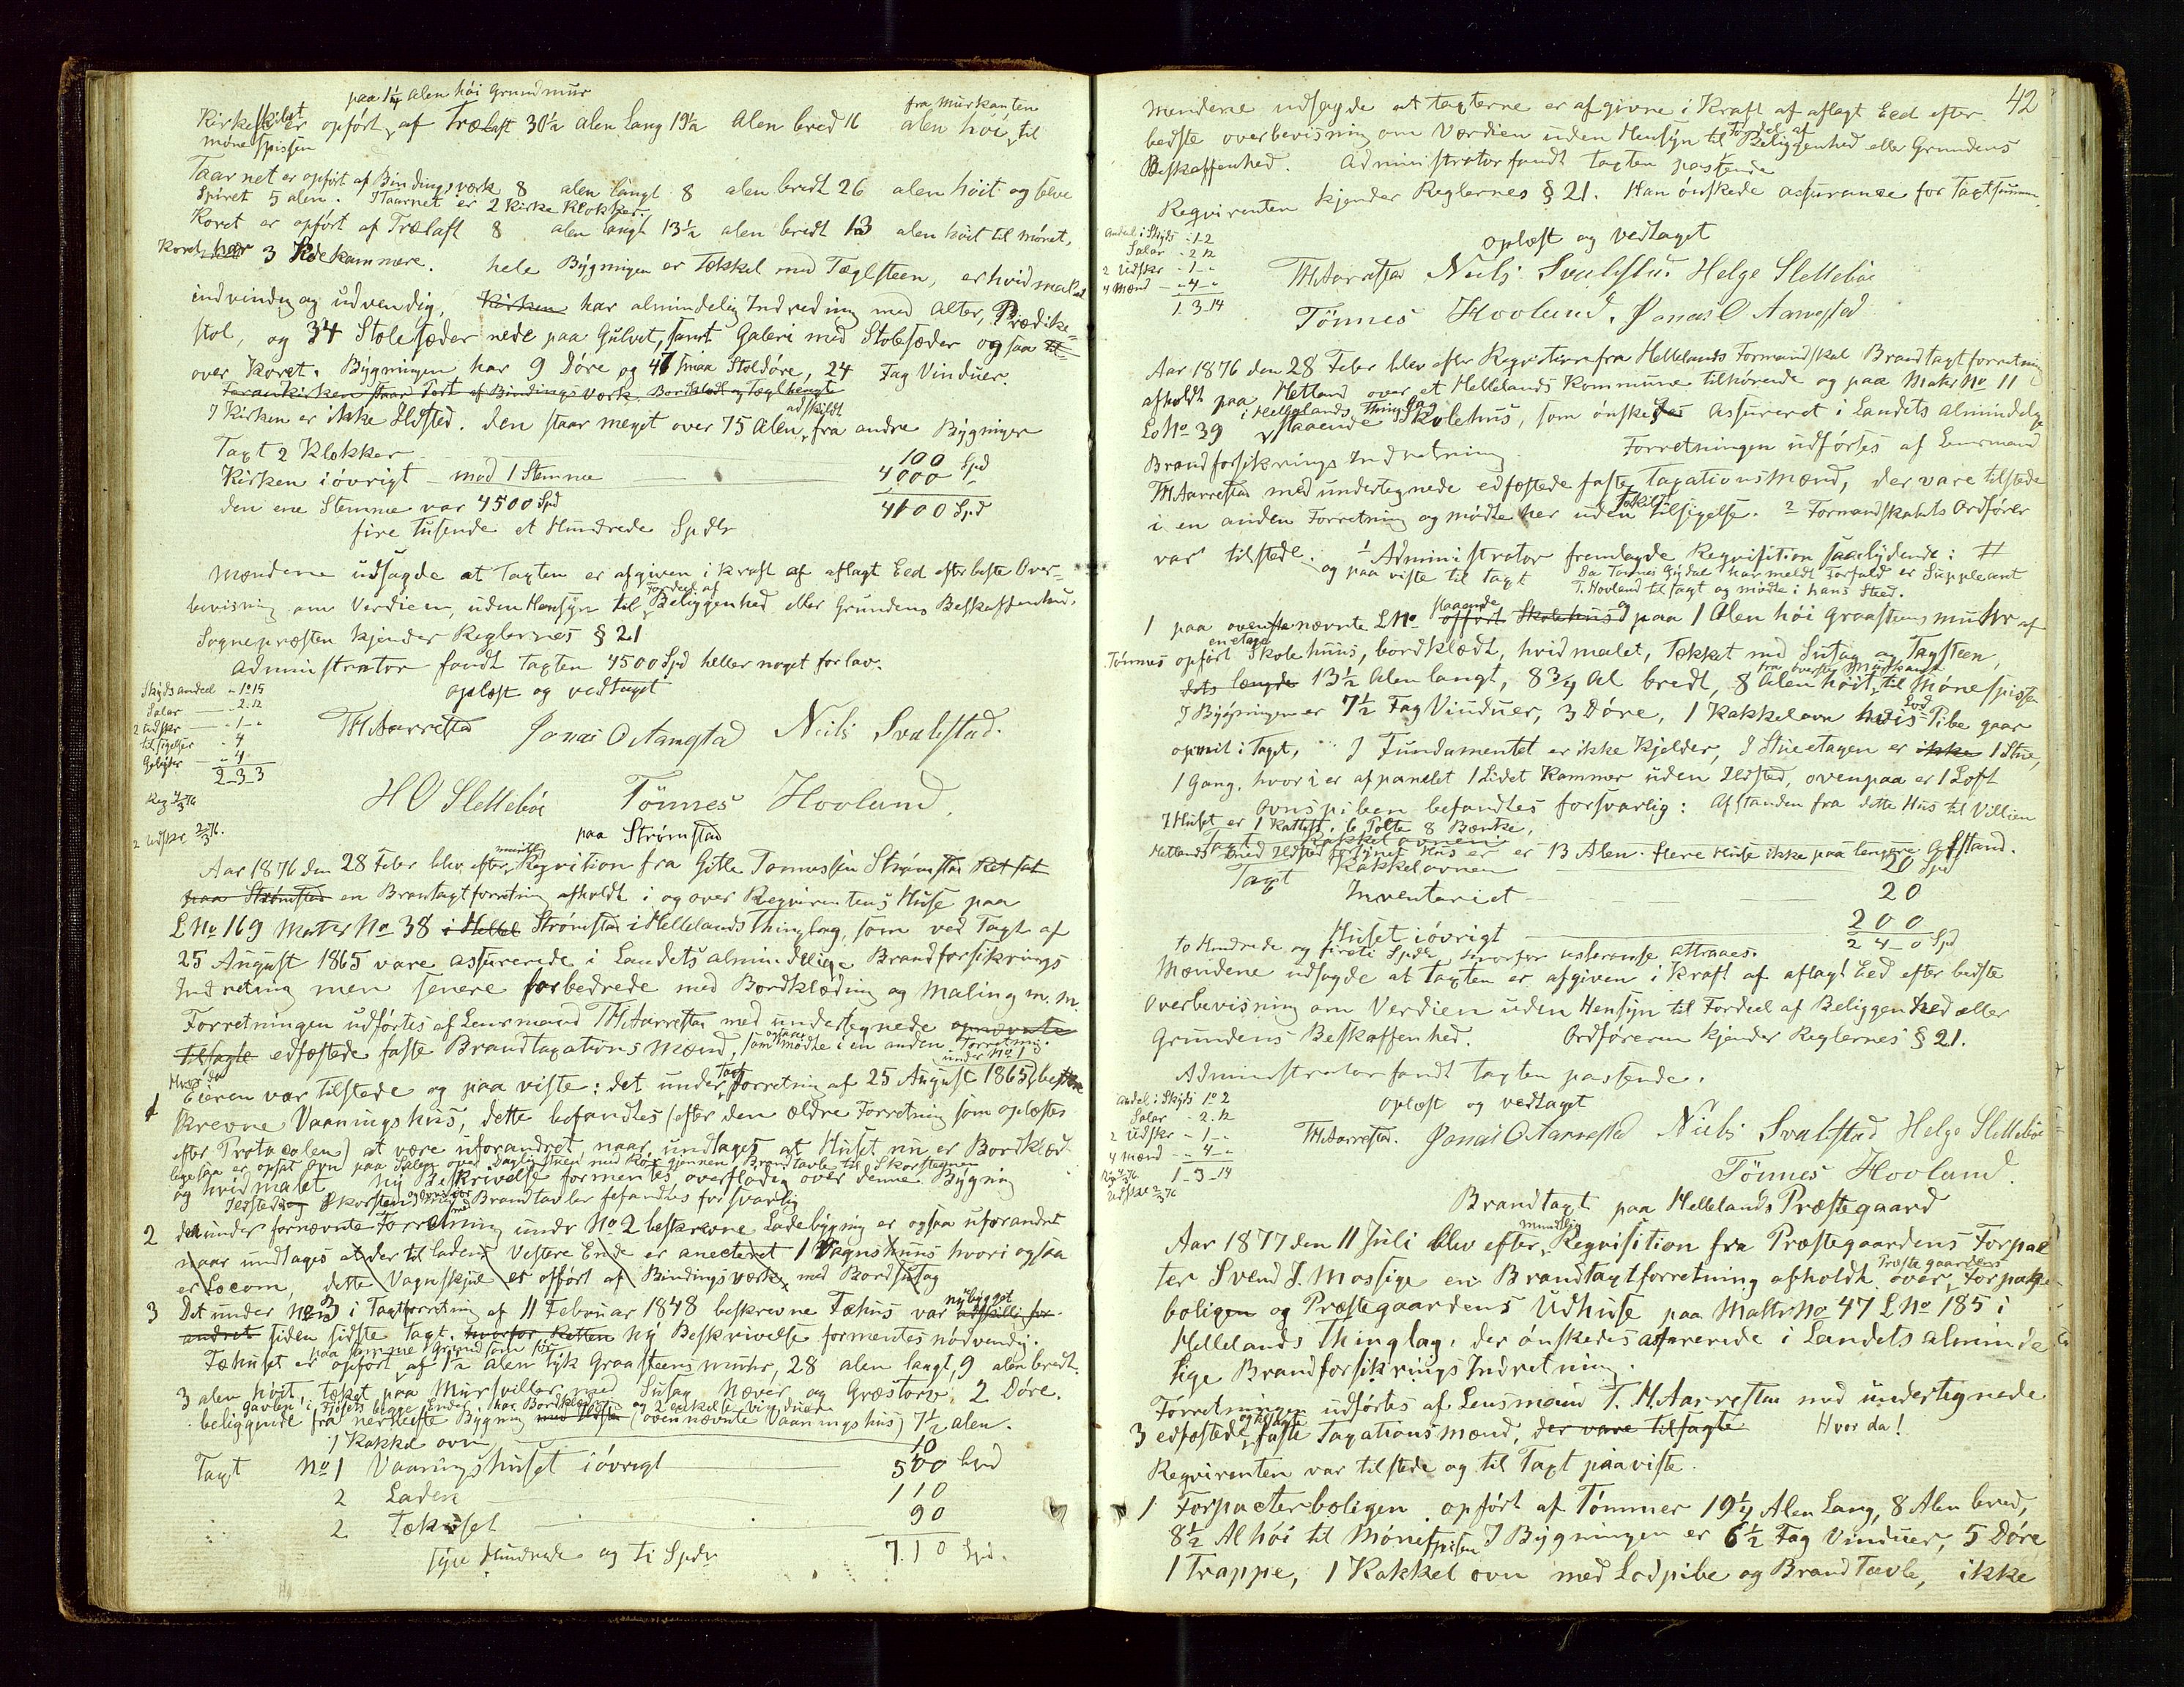 paa 1¼ alen høi Grundmur
Kirkeskibet er opført af Trælaft 30½ alen Lang 19½ Alen bred 16 alen høi, fra Murkanten til
mønespissen
Taarnet er opført af Bindingsværk 8 alen langt 8 alen bredt 26 alen høit og selve
Spiret 5 alen. I Taarnet er 2 Kirke Klokker.
Koret er opført af Trælaft 8 alen langt 13½ alen bredt 13 alen høit til mønet,
Koret har 3 Sidekammere. hele Bygningen er Tækket med Tæglsteen, er hvidmalet
indvindig og udvendig, Kirken har almindelig Indredning med Alter, Prædike-
stol, og 34 Stolesæder nede paa Gulvet, samt Galeri med Stolesæder ogsaa
over Koret. Bygningen har 9 Døre og 47 smaa Stoldøre, 24 Fag Vinduer.
Foran Kirken staar Port af Bindings Værk. Bordklædt og Tægl hængt
I Kirken er ikke Ildsted. Den staar meget over 75 Alen adskildt fra andre Bygninger
Taxt 2 Klokker 100 Spd
Kirken iøvrigt - mod 1 Stemme 4000 "
den ene Stemme var 4500 Spd 4100 Spd
fire Tusende et Hundrede Spdlr
Mændene udsagde at Taxten er afgiven i kraft af aflagt Eed efter beste Over-
bevisning om Verdien, uden Hensyn til Fordeel af Beliggenhed eller Grundens Beskaffenhed.
Sognepræsten kjender Reglernes § 21
Administrator fandt Taxten 4500 Spd heller noget for lav.
oplæst og vedtaget
Skydsandeel " 1 " 15
Salær - 2.12
2 udskr - 1 "
tilsigelser " 4
Gebyhr " 4
2-3-3
THAarrestad Jonas O Aamgstad Niels Svalestad.
HO Slettebøe Tønnes Hovland.
paa Strømstad
Aar 1876 den 28 Feber blev efter mundtlig Reqvition fra Gitle Tønnessen Strømstad
paa Strømstad en Brantaxtforretning afholdt i og over Reqvirentens Huse paa
L No 169 Matr No 38 i Hellel Strømstad i Hellelands Thinglag, som ved Taxt af
25 August 1865 vare assurerede i Landets almindelige Brandforsikrings
Indretning men senere forbedrede med Bordklædning og Maling m. m.
Forretningen udførtes af Lensmand THAarrestad med undertegnede opnævnte
tilsagte edfæstede faste Brandtaxations Mænd, som ogsaa mødte i en anden Forretning.
Eieren var Tilstede og paa viste: det under Taxt forretning af 25 August 1865 under No 1 beskrevne
1 Vaaningshuus, dette befandtes (efter den ældre Forretning som oplæstes
efter Protocolen) at være uforandret, naar undtages at Huset nu er Bordklæd
ligesaa er opsat Ovn paa Salen over Daglig Stuen med Rør gjennem Brandtavle til Skorstenen
og hvidmalet Ny Beskrivelse formentes overflødig over denne Bygning
Ildsted og Skorsten Brandtavler befandtes forsvarlig
2 den under fornævnte Forretning undr No 2 beskrevne Ladebygning er ogsaa uforandret
naar undtages at der til laden Vestere Ende er anecteret 1 Vagnshuus hvori ogsaa
er Locom, dette Vagnskjul er opført af Bindingsværk med Bordsutag
3 Det under No 3 i Taxtforretning af 11 Februar 1848 beskrevne Fæhus var nybygget
siden sidste Taxt. hvorfor Retten ny Beskrivelse formentes nødvendig.
Fæhuset er paa samme Grund opført af 1½ alen tyk Graasteensmuhr, 28 alen langt, 9 alen bredt
3 alen høit, tæket paa Mursviller med Sutag Næver og Græstorv 2 Døre.
gavlen i Fjøsets begge Ender har Bordklædning og 2 enkelte vinduer
beliggende fra nermeste Bygning med Ildsted (ovennævnte Vaaningshus) 7½ alen.
1 Kakkel ovn 10
Taxt No 1 Vaaningshuset iøvrigt 500 Spd
2 Laden 110
2 Fæhuset 90
syv Hundrede og Ti Spdr 710 Spd.
42
Mendene udsagde at taxterne er afgivne i Kraft af aflagt Eed efter
bedste overbevisning om Værdien uden Hensyn til Fordel af Beliggenhed eller Grundens
Beskaffenhed. Administrator fandt taxten passende
Reqvirenten kjender Reglernes § 21. Han ønskede assurance for Taxtsumm.
oplæst og vedtaget
Andel i Skyds - 1 2
Salær - 2 12
2 Udskr - 1 "
4 Mænd - " 4 "
1.3.14
THAarrestad Niels Svalestad Helge Slettebøe
Tønnes Hovland. Jonas O Aamestad
Aar 1876 den 28 Feber blev efter Reqvisition fra Hellelands Formandskab Brandtaxtforretning
afholdt paa Hetland over et Hellelands Kommune tilhørende og paa Matr No 11
Lo No 39 i Hellelands Thinglag staaende Skolehus, som ønskedes Assureret i Landets almindelige
Brandforsikrings Indretning Forretningen udførtes af Lensmand
THAarrestad med undertegnede edfæstede faste Taxationsmænd, der vare tilstede
i en anden Forretning og mødte her uden særskilt tilsigelse. 2 Formandskabets Ordfører
var tilstede. 1 Administrator fremlagde Reqvisition saalydende: #
og paa viste til taxt Da Tønnes Gydal har meldt Forfald er Suppleant
T. Hovland tilsagt og mødte i hans Sted.
1 paa ovenstanævnte LNo staaende opført Skolehus og paa 1 Alen høi Graasteens muhr af
Tømmer opført en etages Skole huus, bordklædt, hvidmalet, Tækket med Sutag og Tagsteen,
dets længde 13½ Alen langt, 8¾ Al bredt, 8 Alen høit, fra øverste Murkant til Mønespissen
I Bygningen er 7½ Fag Vinduer, 3 Døre, 1 Kakkelovn hvis Lod Pibe gaar
op mit i Taget, I Fundamentet er ikke Kjelder, I Stueetagen er ikke 1 Stue,
1 Gang, hvori er afpanelet 1 Lidet Kammer uden Ildsted, ovenpaa er 1 Loft
Ovnspiben befandtes forsvarlig: Afstanden fra dette Hus til Villien
I Huset er 1 Kattest, 6 Polte 8 Bænke,
Hetlands med Ildsted forsynet Hus er er 13 Alen. flere Huse ikke paa lengere Afstand.
Taxt Kakkelovnen 20 Spd
Inventariet 20
Huset iøvrigt 200
to Hundrede og firti Spdr, hvorfor assuranse attraaes. 240 Spd
Mændene udsagde at taxten er afgiven i kraft af aflagt Eed efter bedste
Overbevisning om Verdien uden Hensyn til Fordeel af Beliggenhed eller
Grundens Beskaffenhed. Ordføreren kjender Reglernes § 21.
Administrator fandt taxten passende.
oplæst og vedtaget
Andel i Skyds 1 " 2
Salær - 2.12
2 Udskr " 1 - "
4 Mænd - " 4 - "
1-3-14
THAarrestad. Jonas O Aamestad Niels Svalestad Helge Slettebøe
Tønnes Hovland.
Brandtaxt paa Hellelands Præstegaard
Aar 1877 den 11 Juli blev efter mundtlig Reqvisition fra Præstegaardens Forpak
ter Svend J. Mossige en Brandtaxtforretning afholdt over Præstegaardens Forpagter-
boligen og Præstegaardens Udhuse paa Matr No 47 L No 185 i
Hellelands Thinglag, der ønskedes assurerede i Landets alminde
lige Brandforsikrings Indretning.
Forretningen udførtes af Lensmand T. H. Aarrestad med undertegnede
3 edfæstede og tilsagte faste Taxationsmænd, der vare tilsagte Hvor da!
Reqvirenten var tilstede og til Taxt paaviste.
1 Forpacterboligen opført af Tømmer 19¼ Alen Lang, 8 Alen bred,
8½ Al høi til Mønespissen I Bygningen er 6½ Fag Vinduer, 5 Døre
1 Trappe, 1 Kakkel ovn med Lodpibe og Brand Tavle, ikke